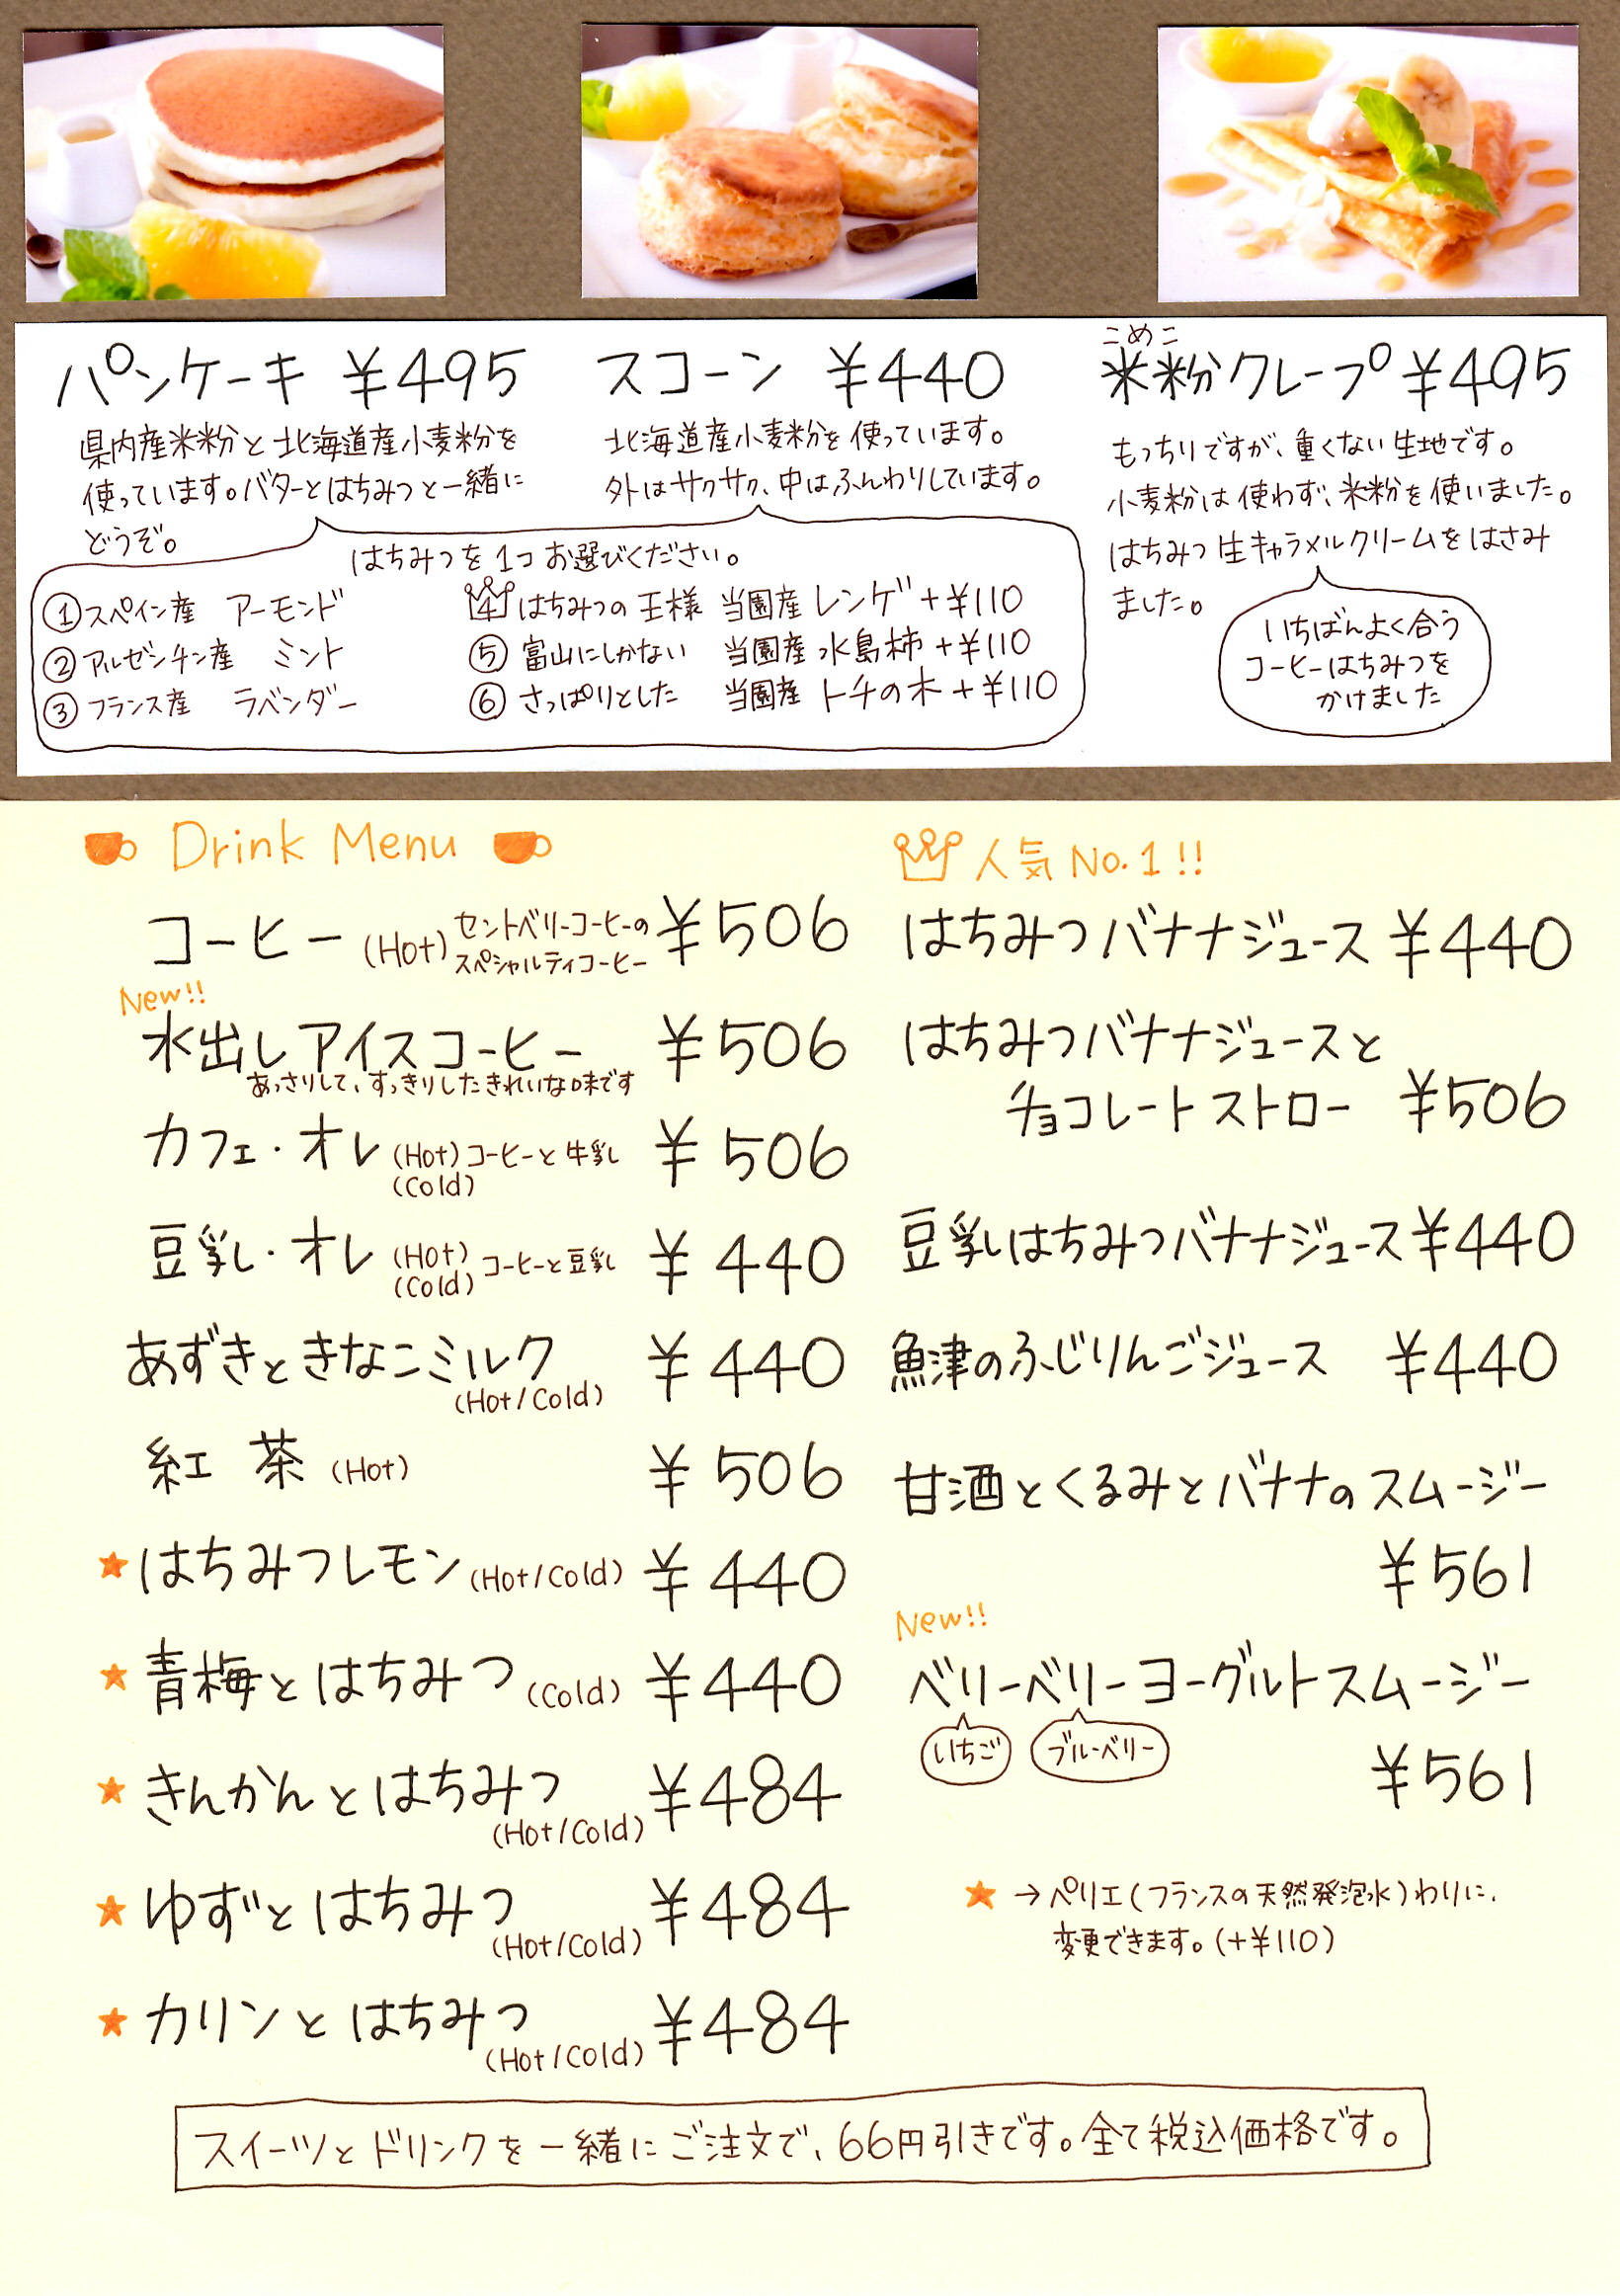 パンケーキ ¥495
県内産米粉と北海道産小麦粉を
使っています。バターとはちみつと一緒に
どうぞ。
スコーン ¥440
北海道産小麦粉を使っています。
外はサクサク、中はふんわりしています。
はちみつを1つお選びください。
①スペイン産 アーモンド
②アルゼンチン産 ミント
③フランス産 ラベンダー
4 はちみつの王様 当園産 レンゲ +¥110
⑤ 富山にしかない 当園産 水島柿 +¥110
⑥ さっぱりとした 当園産 トチの木 +¥110
こめこ
米粉クレープ ¥495
もっちりですが、重くない生地です。
小麦粉は使わず、米粉を使いました。
はちみつ生キャラメルクリームをはさみ
ました。
いちばんよく合う
コーヒーはちみつを
かけました
Drink Menu
コーヒー (Hot) セントベリーコーヒーの
スペシャルティコーヒー ¥506
New!!
水出しアイスコーヒー ¥506
あっさりして、すっきりしたきれいな味です
カフェ・オレ (Hot) コーヒーと牛乳 ¥506
(Cold)
豆乳・オレ (Hot) コーヒーと豆乳 ¥440
(Cold)
あずきときなこミルク ¥440
(Hot/Cold)
紅茶 (Hot) ¥506
★はちみつレモン (Hot/Cold) ¥440
★青梅とはちみつ (Cold) ¥440
★きんかんとはちみつ ¥484
(Hot/Cold)
★ゆずとはちみつ ¥484
(Hot/Cold)
★カリンとはちみつ ¥484
(Hot/Cold)
人気No.1!!
はちみつバナナジュース ¥440
はちみつバナナジュースと
チョコレートストロー ¥506
豆乳はちみつバナナジュース ¥440
魚津のふじりんごジュース ¥440
甘酒とくるみとバナナのスムージー
¥561
New!!
ベリーベリーヨーグルトスムージー
いちご ブルーベリー
¥561
★→ペリエ(フランスの天然発泡水)わりに、
変更できます。(+¥110)
スイーツとドリンクを一緒にご注文で、66円引きです。全て税込価格です。